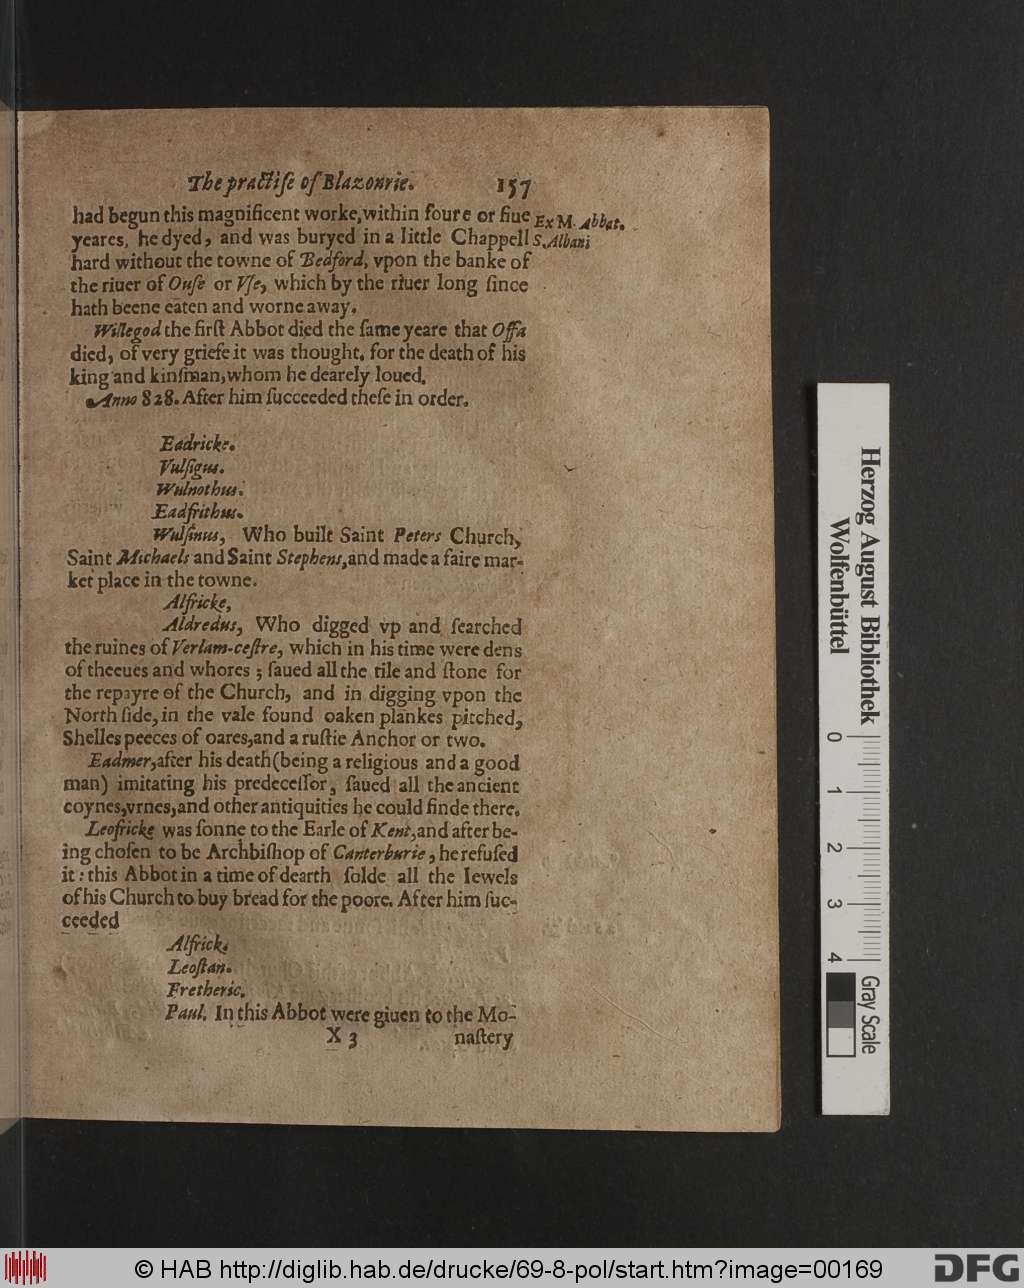 The practise of Blazonrie. 157
had begun this magnificent worke, within foure or fiue
Ex M. Abbat.
yeares, he dyed, and was buryed in a little Chappell
S. Albani
hard without the towne of Bedford, vpon the banke of
the riuer of Ouſe or Vſe, which by the riuer long ſince
hath beene eaten and worne away.
Willegod the firſt Abbot died the ſame yeare that Offa
died, of very griefe it was thought, for the death of his
king and kinſman, whom he dearely loued.
Anno 828. After him ſucceeded theſe in order.
Eadricke.
Vulſigus.
Wulnothus.
Eadfrithus.
Wulſinus, Who built Saint Peters Church,
Saint Michaels and Saint Stephens, and made a faire mar-
ket place in the towne.
Alfricke,
Aldredus, Who digged vp and ſearched
the ruines of Verlam-ceſtre, which in his time were dens
of theeues and whores; ſaued all the tile and ſtone for
the repayre of the Church, and in digging vpon the
North ſide, in the vale found oaken plankes pitched,
Shelles peeces of oares, and a ruſtie Anchor or two.
Eadmer, after his death (being a religious and a good
man) imitating his predeceſſor, ſaued all the ancient
coynes, vrnes, and other antiquities he could finde there.
Leofricke was ſonne to the Earle of Kent, and after be-
ing choſen to be Archbiſhop of Canterburie, he refuſed
it: this Abbot in a time of dearth ſolde all the Iewels
of his Church to buy bread for the poore. After him ſuc-
ceeded
Alfrick.
Leoſtan.
Fretheric.
Paul. In this Abbot were giuen to the Mo-
X 3 naſtery
Herzog August Bibliothek
Wolfenbüttel
0 1 2 3 4
Gray Scale
© HAB http://diglib.hab.de/drucke/69-8-pol/start.htm?image=00169
DFG